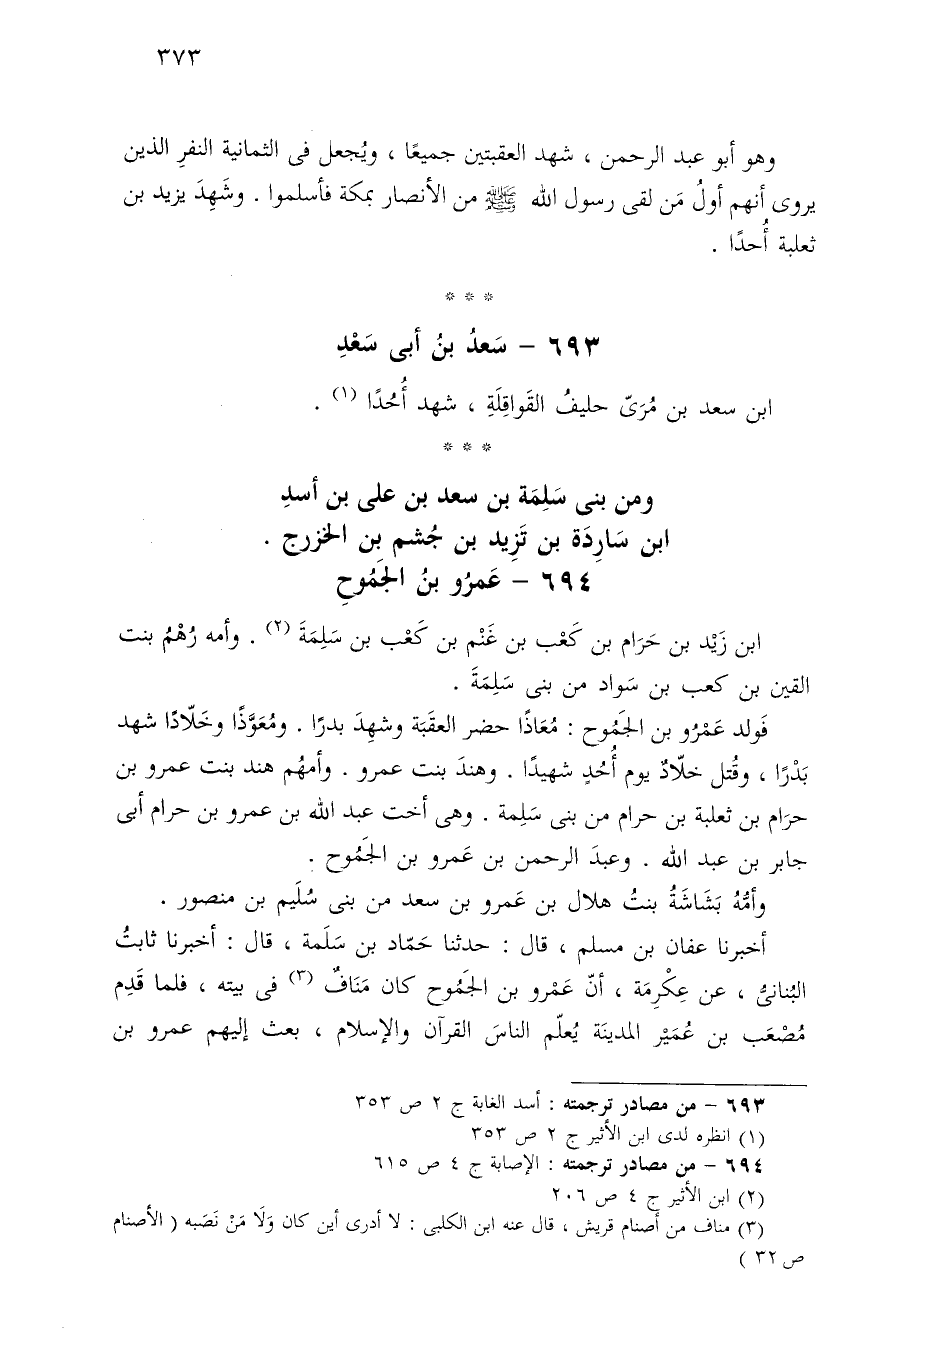 ٣٧٣
وهو أبو عبد الرحمن ، شهد العقبتين جميعًا ، ويُجعل فى الثمانية النفرِ الذين
يروى أنهم أولُ مَن لقى رسول الله ﷺ من الأنصار بمكة فأسلموا . وشَهِدَ يزيد بن
ثعلبة أُحدًا .
* * *
٦٩٣ – سَعدُ بنُ أبى سَعْدِ
ابن سعد بن مُرَىّ حليفُ القَواقِلَةِ ، شهد أُحُدًا (١) .
* * *
ومن بنى سَلِمَة بن سعد بن على بن أسدِ
ابن سَارِدَة بن تَزِيد بن جُشم بن الخزرج .
٦٩٤ – عَمرُو بنُ الجَمُوحِ
ابن زَيْد بن حَرَام بن كَعْب بن غَنْم بن كَعْب بن سَلِمَةَ (٢) . وأمه رُهْمُ بنت
القين بن كعب بن سَواد من بنى سَلِمَةَ .
فَولد عَمْرُو بن الجَمُوح : مُعَاذًا حضر العقَبَة وشهِدَ بدرًا . ومُعَوَّذًا وخَلّادًا شهد
بَدْرًا ، وقُتل خلّادٌ يوم أُحُدٍ شهيدًا . وهندَ بنت عمرو . وأمهُم هند بنت عمرو بن
حرَام بن ثعلبة بن حرام من بنى سَلِمة . وهى أخت عبد الله بن عمرو بن حرام أبى
جابر بن عبد الله . وعبدَ الرحمن بن عَمرو بن الجَمُوح .
وأمُّهُ بَشَاشَةُ بنتُ هلال بن عَمرو بن سعد من بنى سُلَيم بن منصور .
أخبرنا عفان بن مسلم ، قال : حدثنا حَمّاد بن سَلَمة ، قال : أخبرنا ثابتُ
البُنانىُّ ، عن عِكْرِمَة ، أنّ عَمْرو بن الجَمُوح كان مَنَافٌ (٣) فى بيته ، فلما قَدِم
مُصْعَب بن عُمَيْر المدينَة يُعلّم الناسَ القرآن والإسلام ، بعث إليهم عمرو بن
٦٩٣ – من مصادر ترجمته : أسد الغابة ج ٢ ص ٣٥٣
(١) انظره لدى ابن الأثير ج ٢ ص ٣٥٣
٦٩٤ – من مصادر ترجمته : الإصابة ج ٤ ص ٦١٥
(٢) ابن الأثير ج ٤ ص ٢٠٦
(٣) مناف من أصنام قريش ، قال عنه ابن الكلبى : لا أدرى أين كان وَلَا مَنْ نَصَبه ( الأصنام
ص ٣٢ )